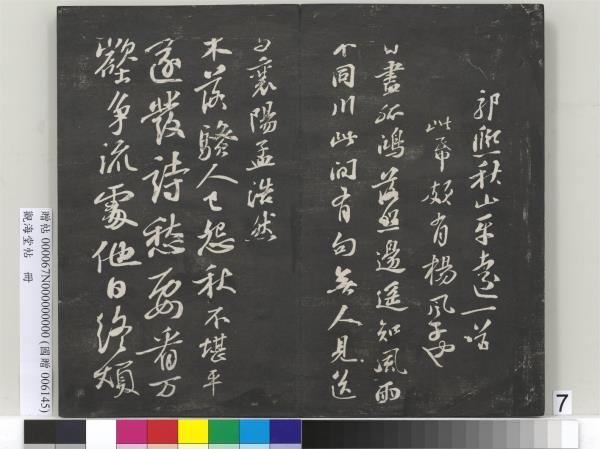 郭熙秋山平遠二首
此帋頗有楊風子也
目盡孤鴻落照邊遙知風雨
不同川此间有句无人見送
与襄陽孟浩然
木落騷人已怨秋不堪平
遠發詩愁要看万
壑爭流處他日終煩
贈帖 000067N000000000 (國贈 006145)
觀海堂帖 冊
7